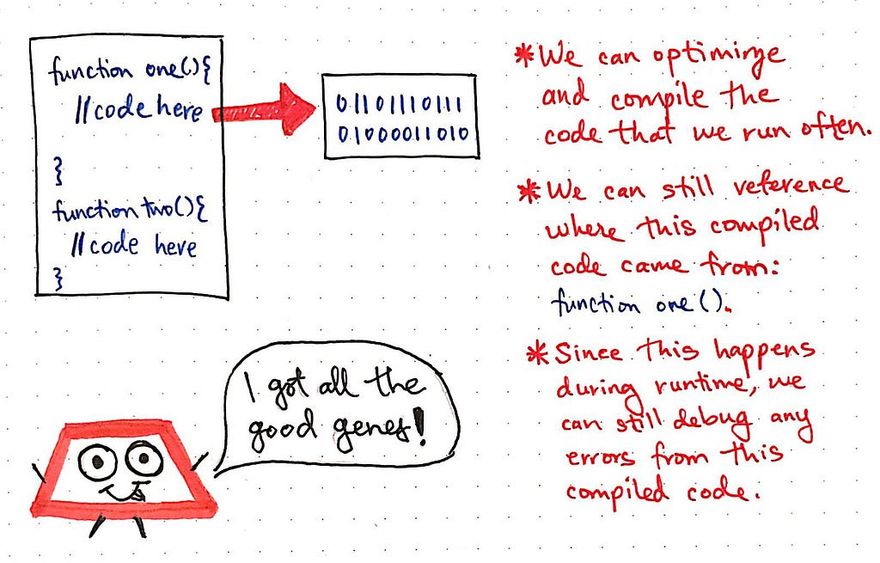 function one(){
//code here
}
function two(){
//code here
}
01101110111
01000011010
*We can optimimze
and compile the
code that we run often.
*We can still reference
where this compiled
code came from:
function one().
*Since this happens
during runtime, we
can still debug any
errors from this
compiled code.
I got all the
good genes!